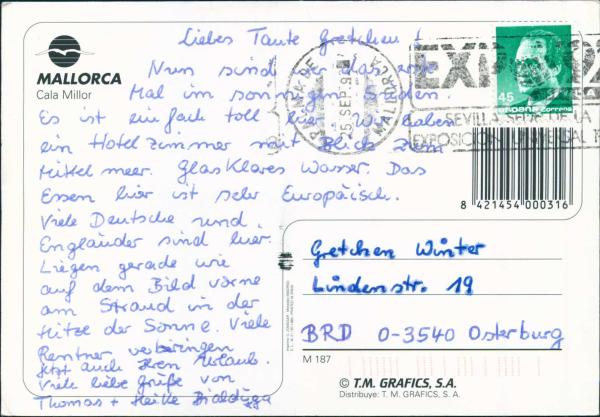 MALLORCA
Cala Millor
Liebes Tante Gretchen!
Nun sind wir das erste
Mal im sonnigen Süden.
Es ist einfach toll hier. Wir haben
ein Hotelzimmer mit Blick zum
Mittelmeer. Glasklares Wasser. Das
Essen hier ist sehr Europäisch.
Viele Deutsche und
Engländer sind hier.
Liegen gerade wie
auf dem Bild vorne
am Strand in der
Hitze der Sonne. Viele
Rentner verbringen
jetzt auch Ihren Urlaub.
Viele liebe Grüße von
Thomas + Heike
PALMA DE MALLORCA
SEP.
EXPO 92
SEVILLA SEDE DE LA
EXPOSICION UNIVERSAL
45
ESPAÑA correos
8 421454 000316
Gretchen Winter
Lindenstr. 19
BRD O-3540 Osterburg
M 187
© T.M. GRAFICS, S.A.
Distribuye: T. M. GRAFICS, S.A.